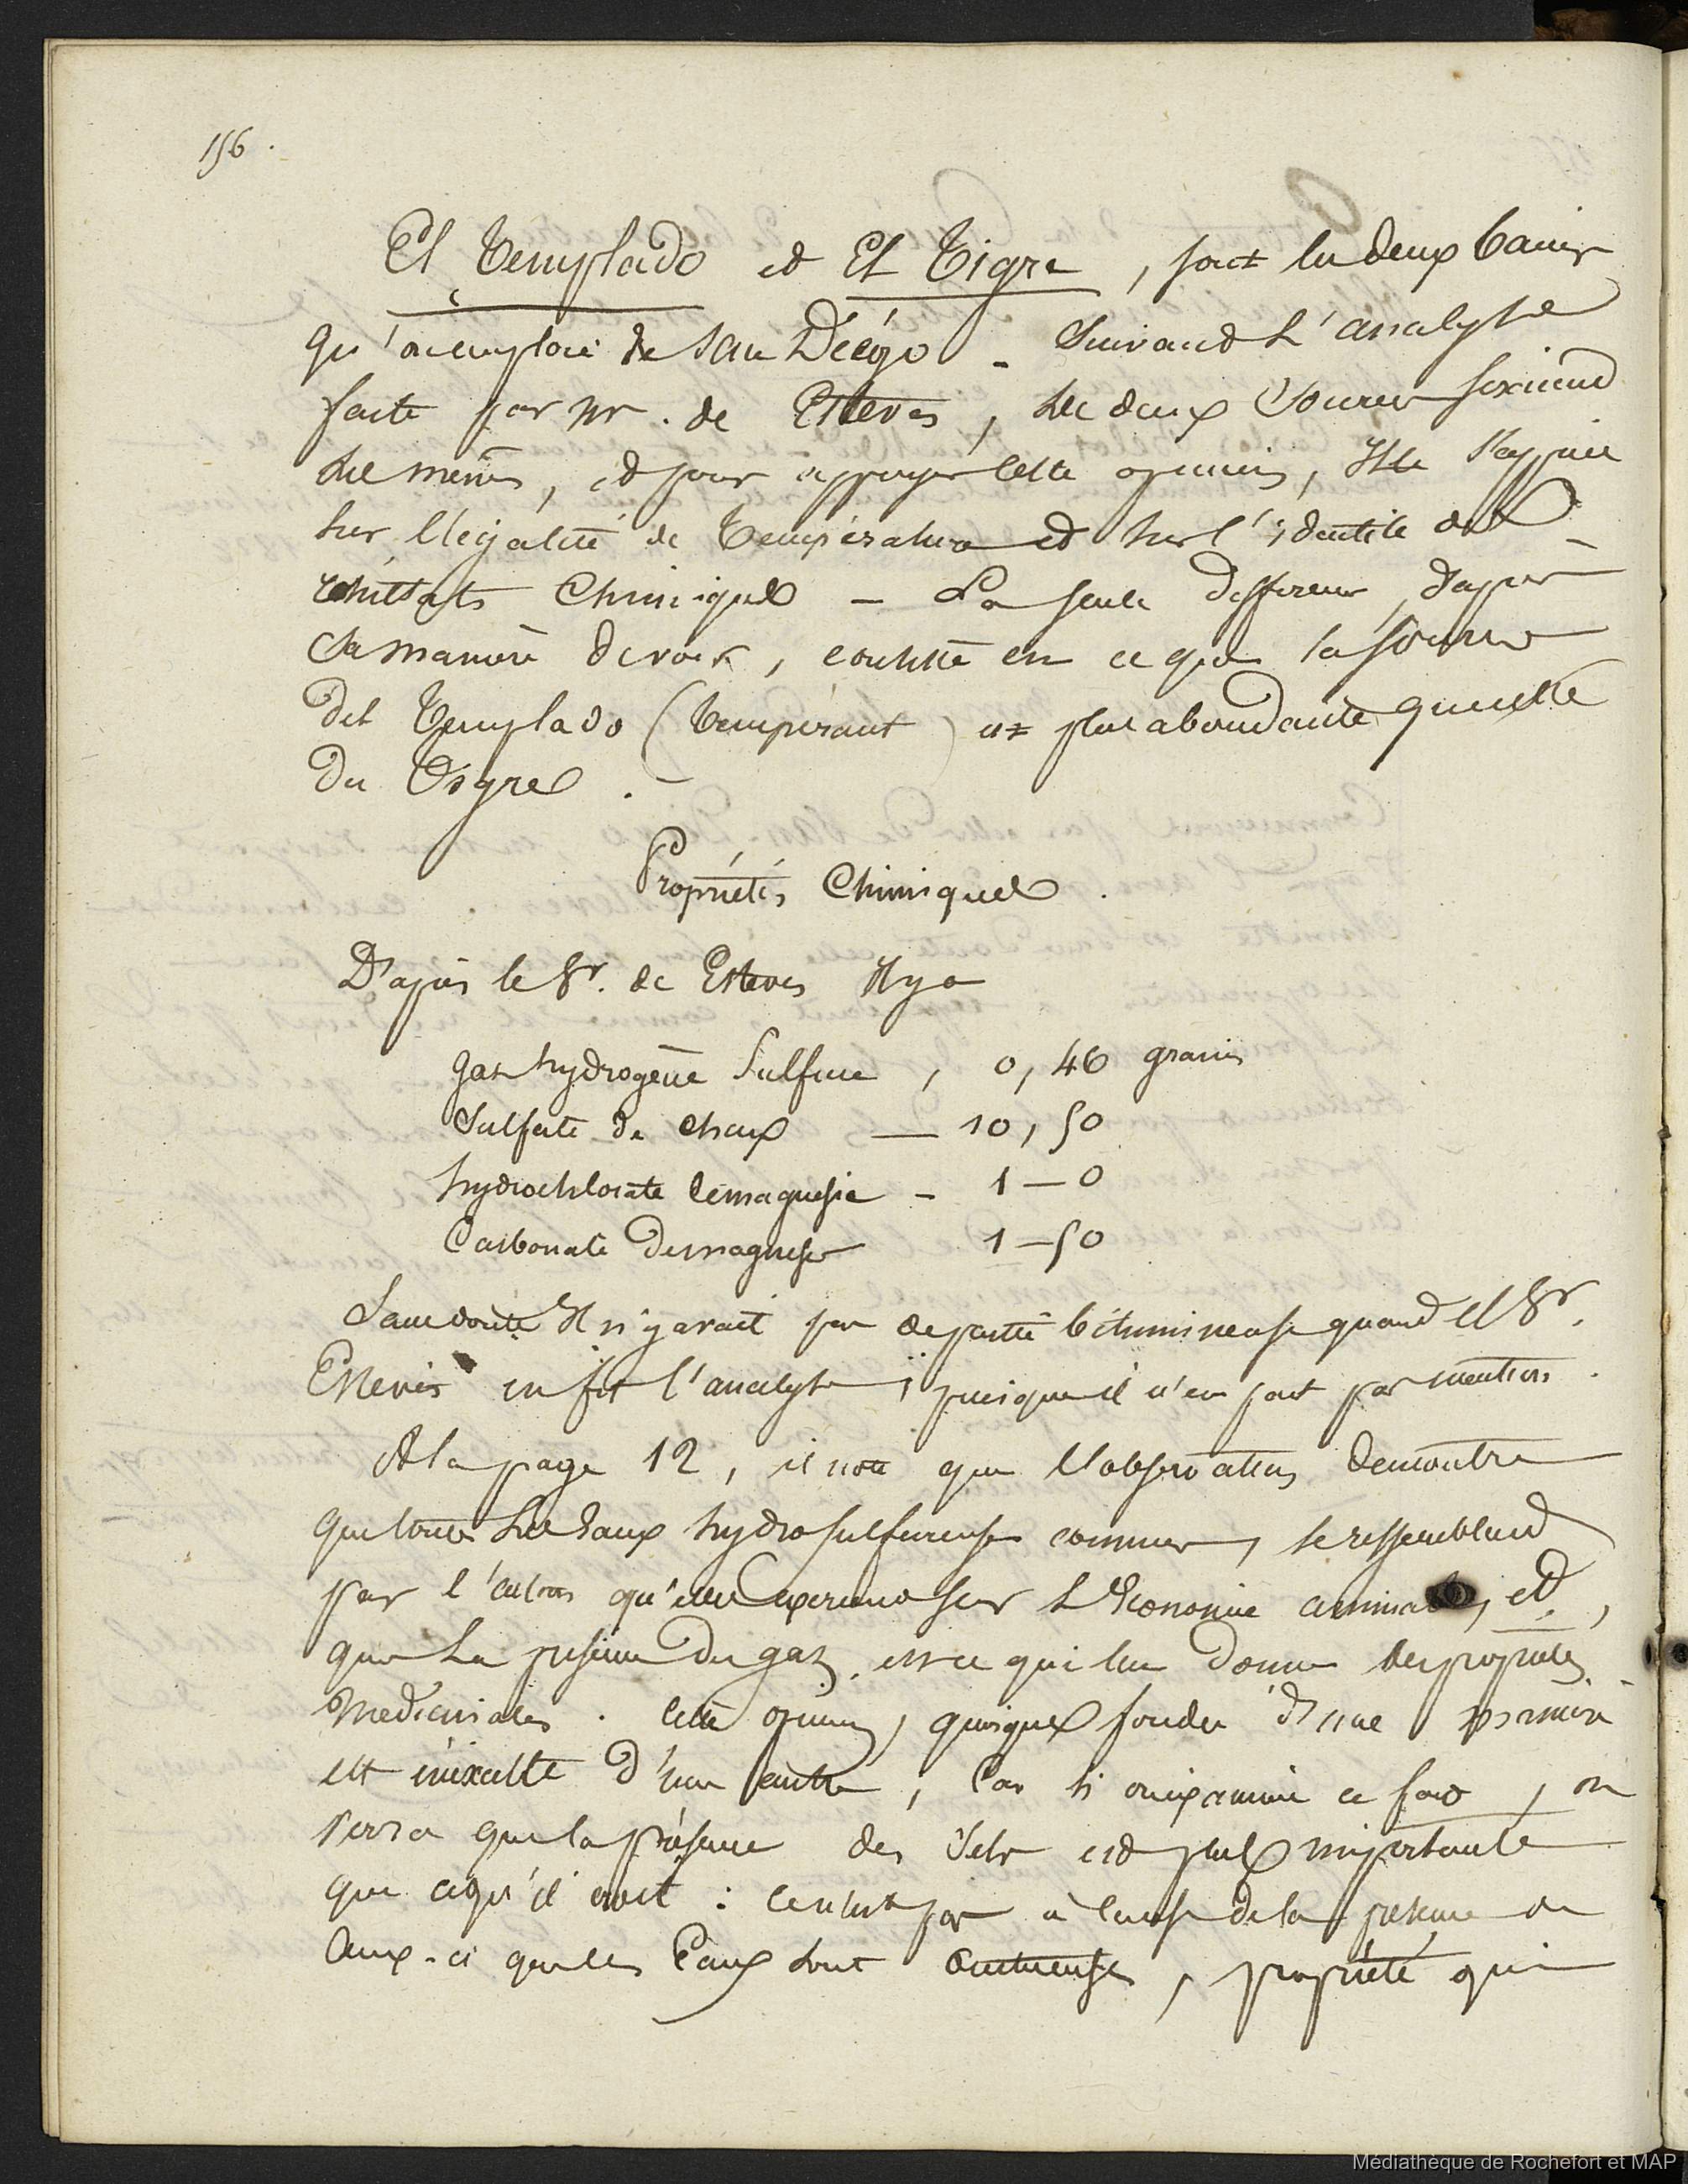 156.
El Templado et El Tigre, sont les deux bains
qu'on emploie de San Diégo - Suivant l'analyse
faite par Mr. de Esteves, les deux sources seraient
les mêmes, et pour appuyer cette opinion, il s'appuie
sur l'égalité de température et sur l'identité des
résultats chimiques - La seule différence, d'après
sa manière de voir, consiste en ce que la source
del Templado (tempérant) est plus abondante que celle
du Tigre.
Propriétés Chimiques.
D'après le Sr. de Esteves Il y a
gaz hydrogène sulfuré, 0,46 grains
Sulfate de chaux — 10,50
hydrochlorate de magnesie - 1—0
Carbonate de magnesie 1—50
Sans doute Il n'y avait pas de partie bitumineuse quand el Sr.
Esteves en fit l'analyse, puisque il n'en fait pas mention.
A la page 12, il note que l'observation demontre
que toutes les Eaux hydrosulfureuses connues, se ressemblent
par l'action qu'elles exercent sur l'Economie animale, et,
que la présence du gaz, est ce qui leur donne les propriétés
medicinales. Cette opinion, quoique fondée d'une manière
est inéxacte d'une autre, Car si on examine ce fait, on
verra que la présence des Sels est plus importante
que ce qu'il croit : ce n'est pas à cause de la présence de
Ceux-ci que les Eaux sont onctueuses, propriété qui
Médiathèque de Rochefort et MAP